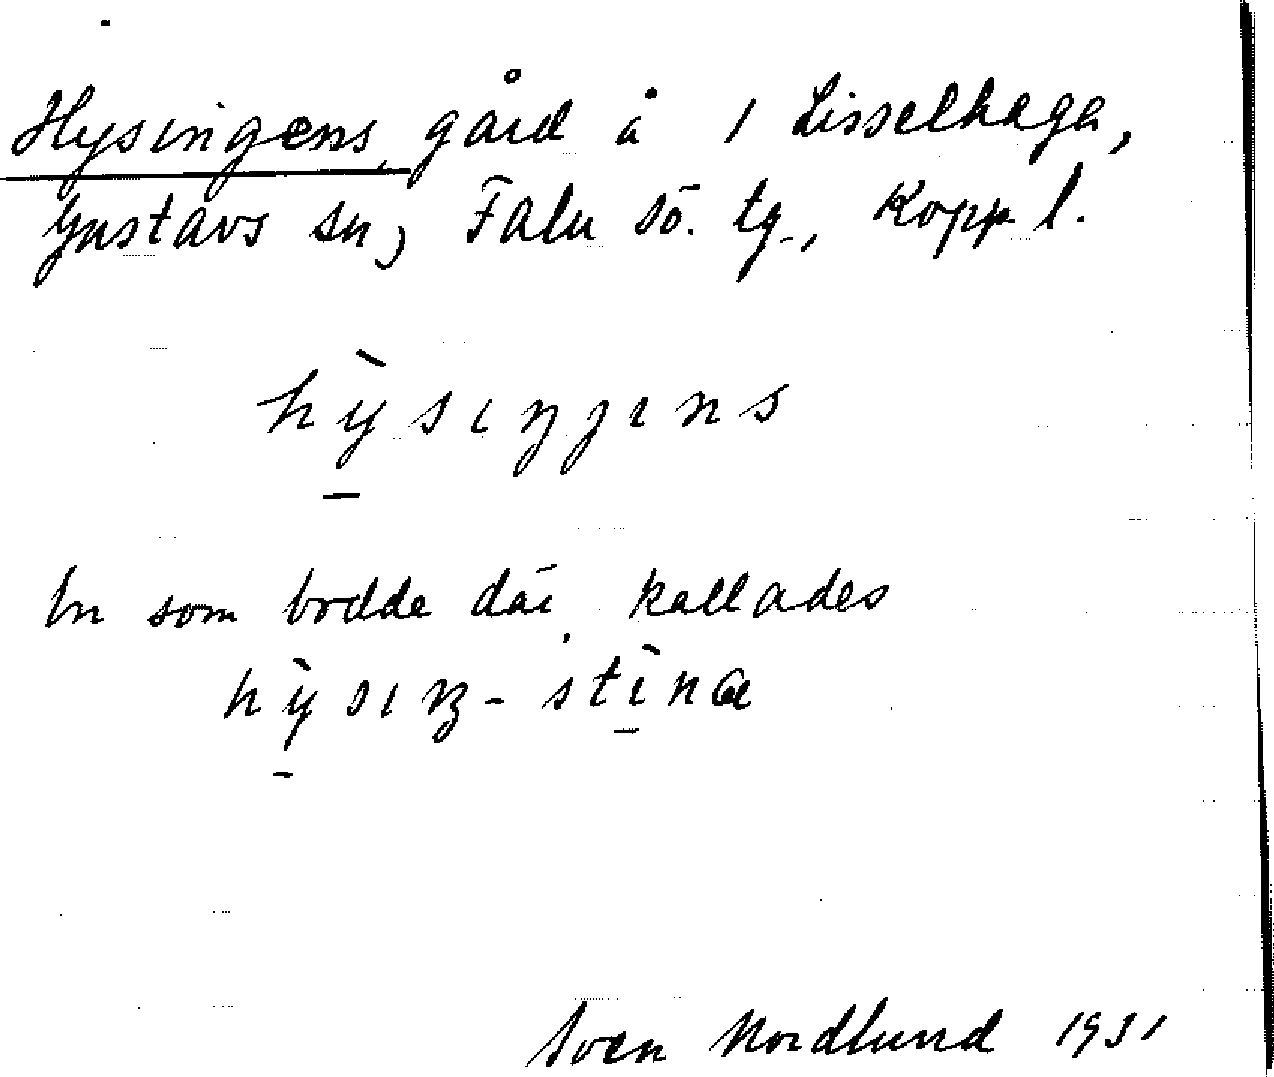 Hysingens, gård å 1 Lisselhaga,
Gustavs sn, Falu sö. tg., Kopp l.
hỳsıŋȷıns
En som bodde där, kallades
hỳsıŋ-stìnα
Sven Nordlund 1931